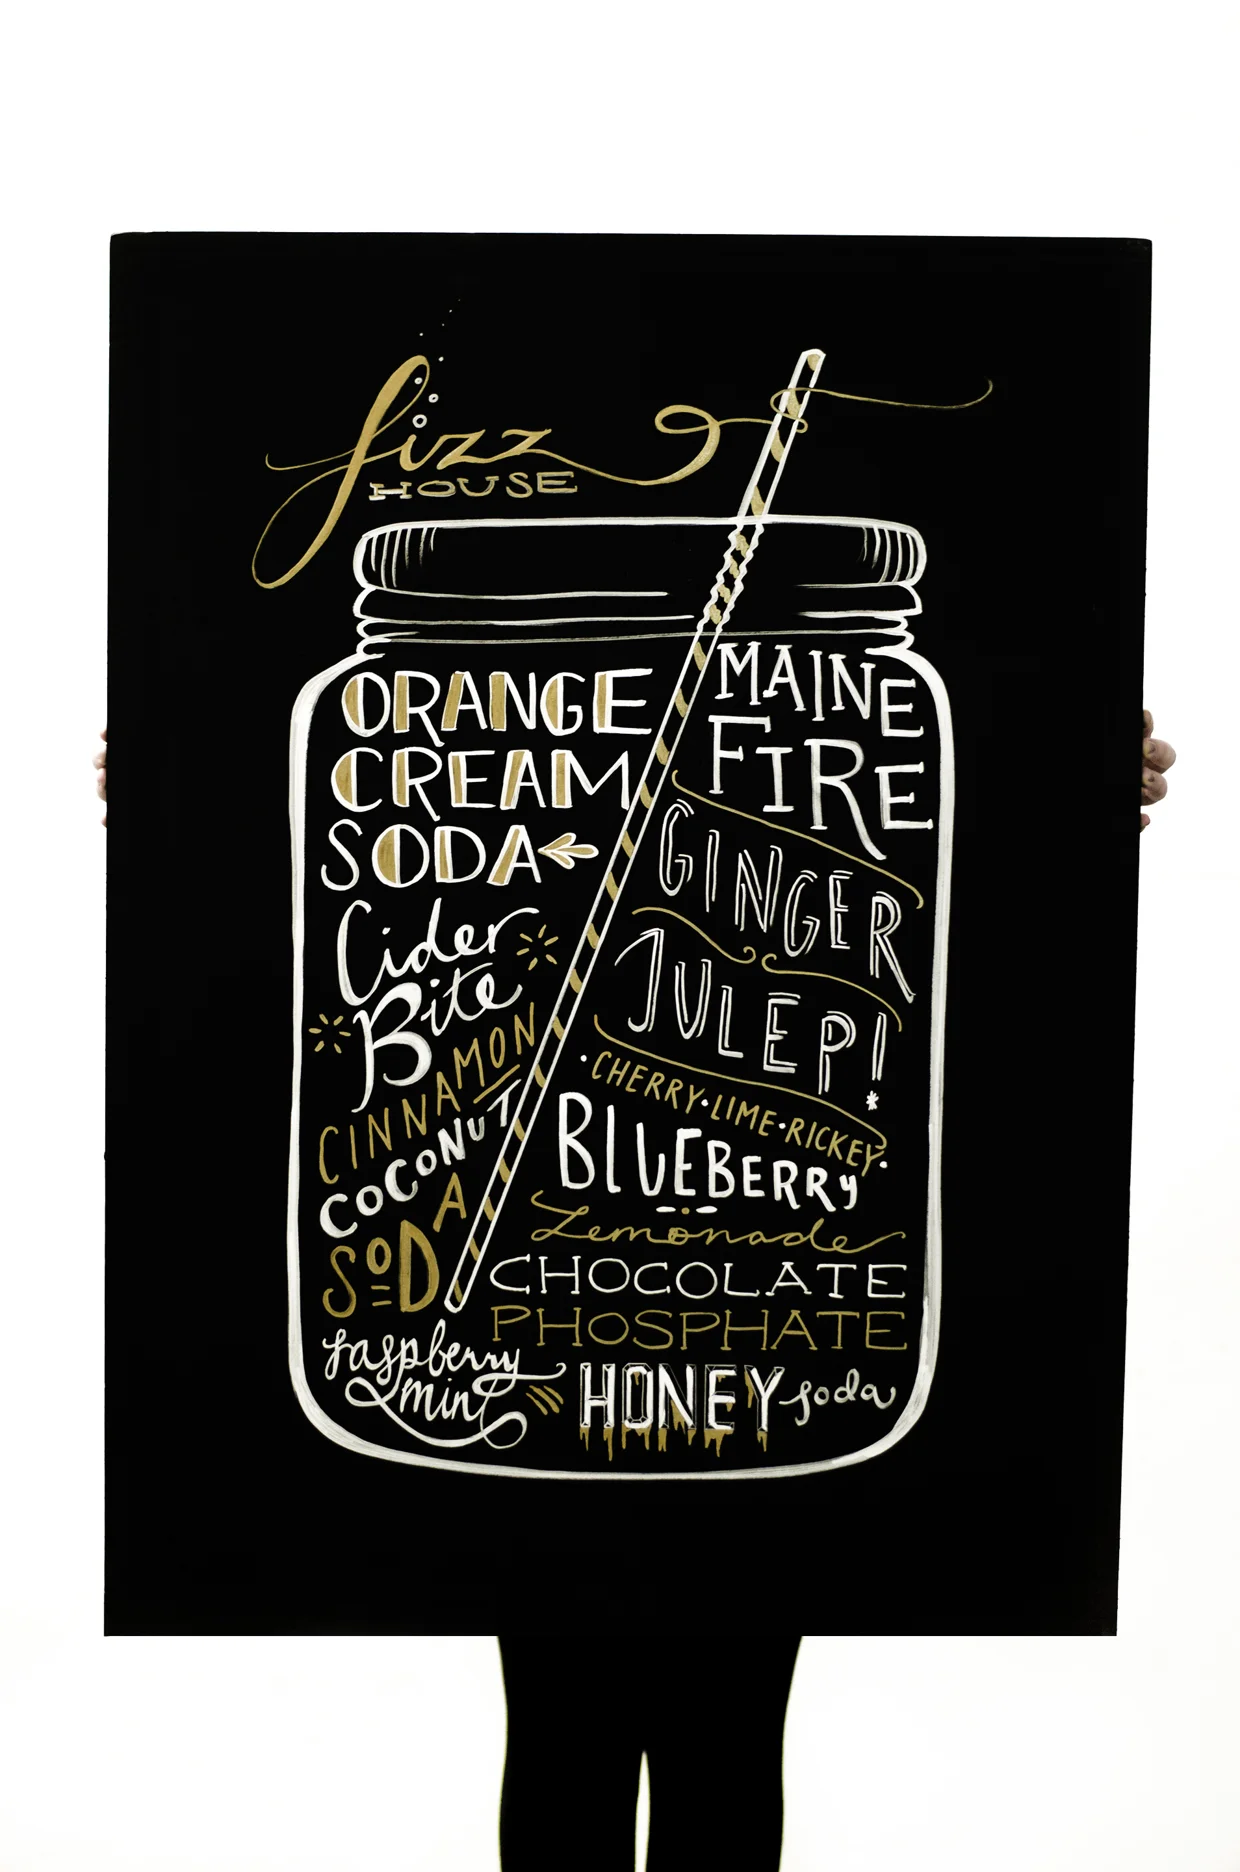 fizz
HOUSE
ORANGE
CREAM
SODA
Cider
Bite
CINNAMON
COCONUT
SODA
raspberry
mint
MAINE
FIRE
GINGER
JULEP!
CHERRY·LIME·RICKEY
BLUEBERRY
Lemonade
CHOCOLATE
PHOSPHATE
HONEY soda